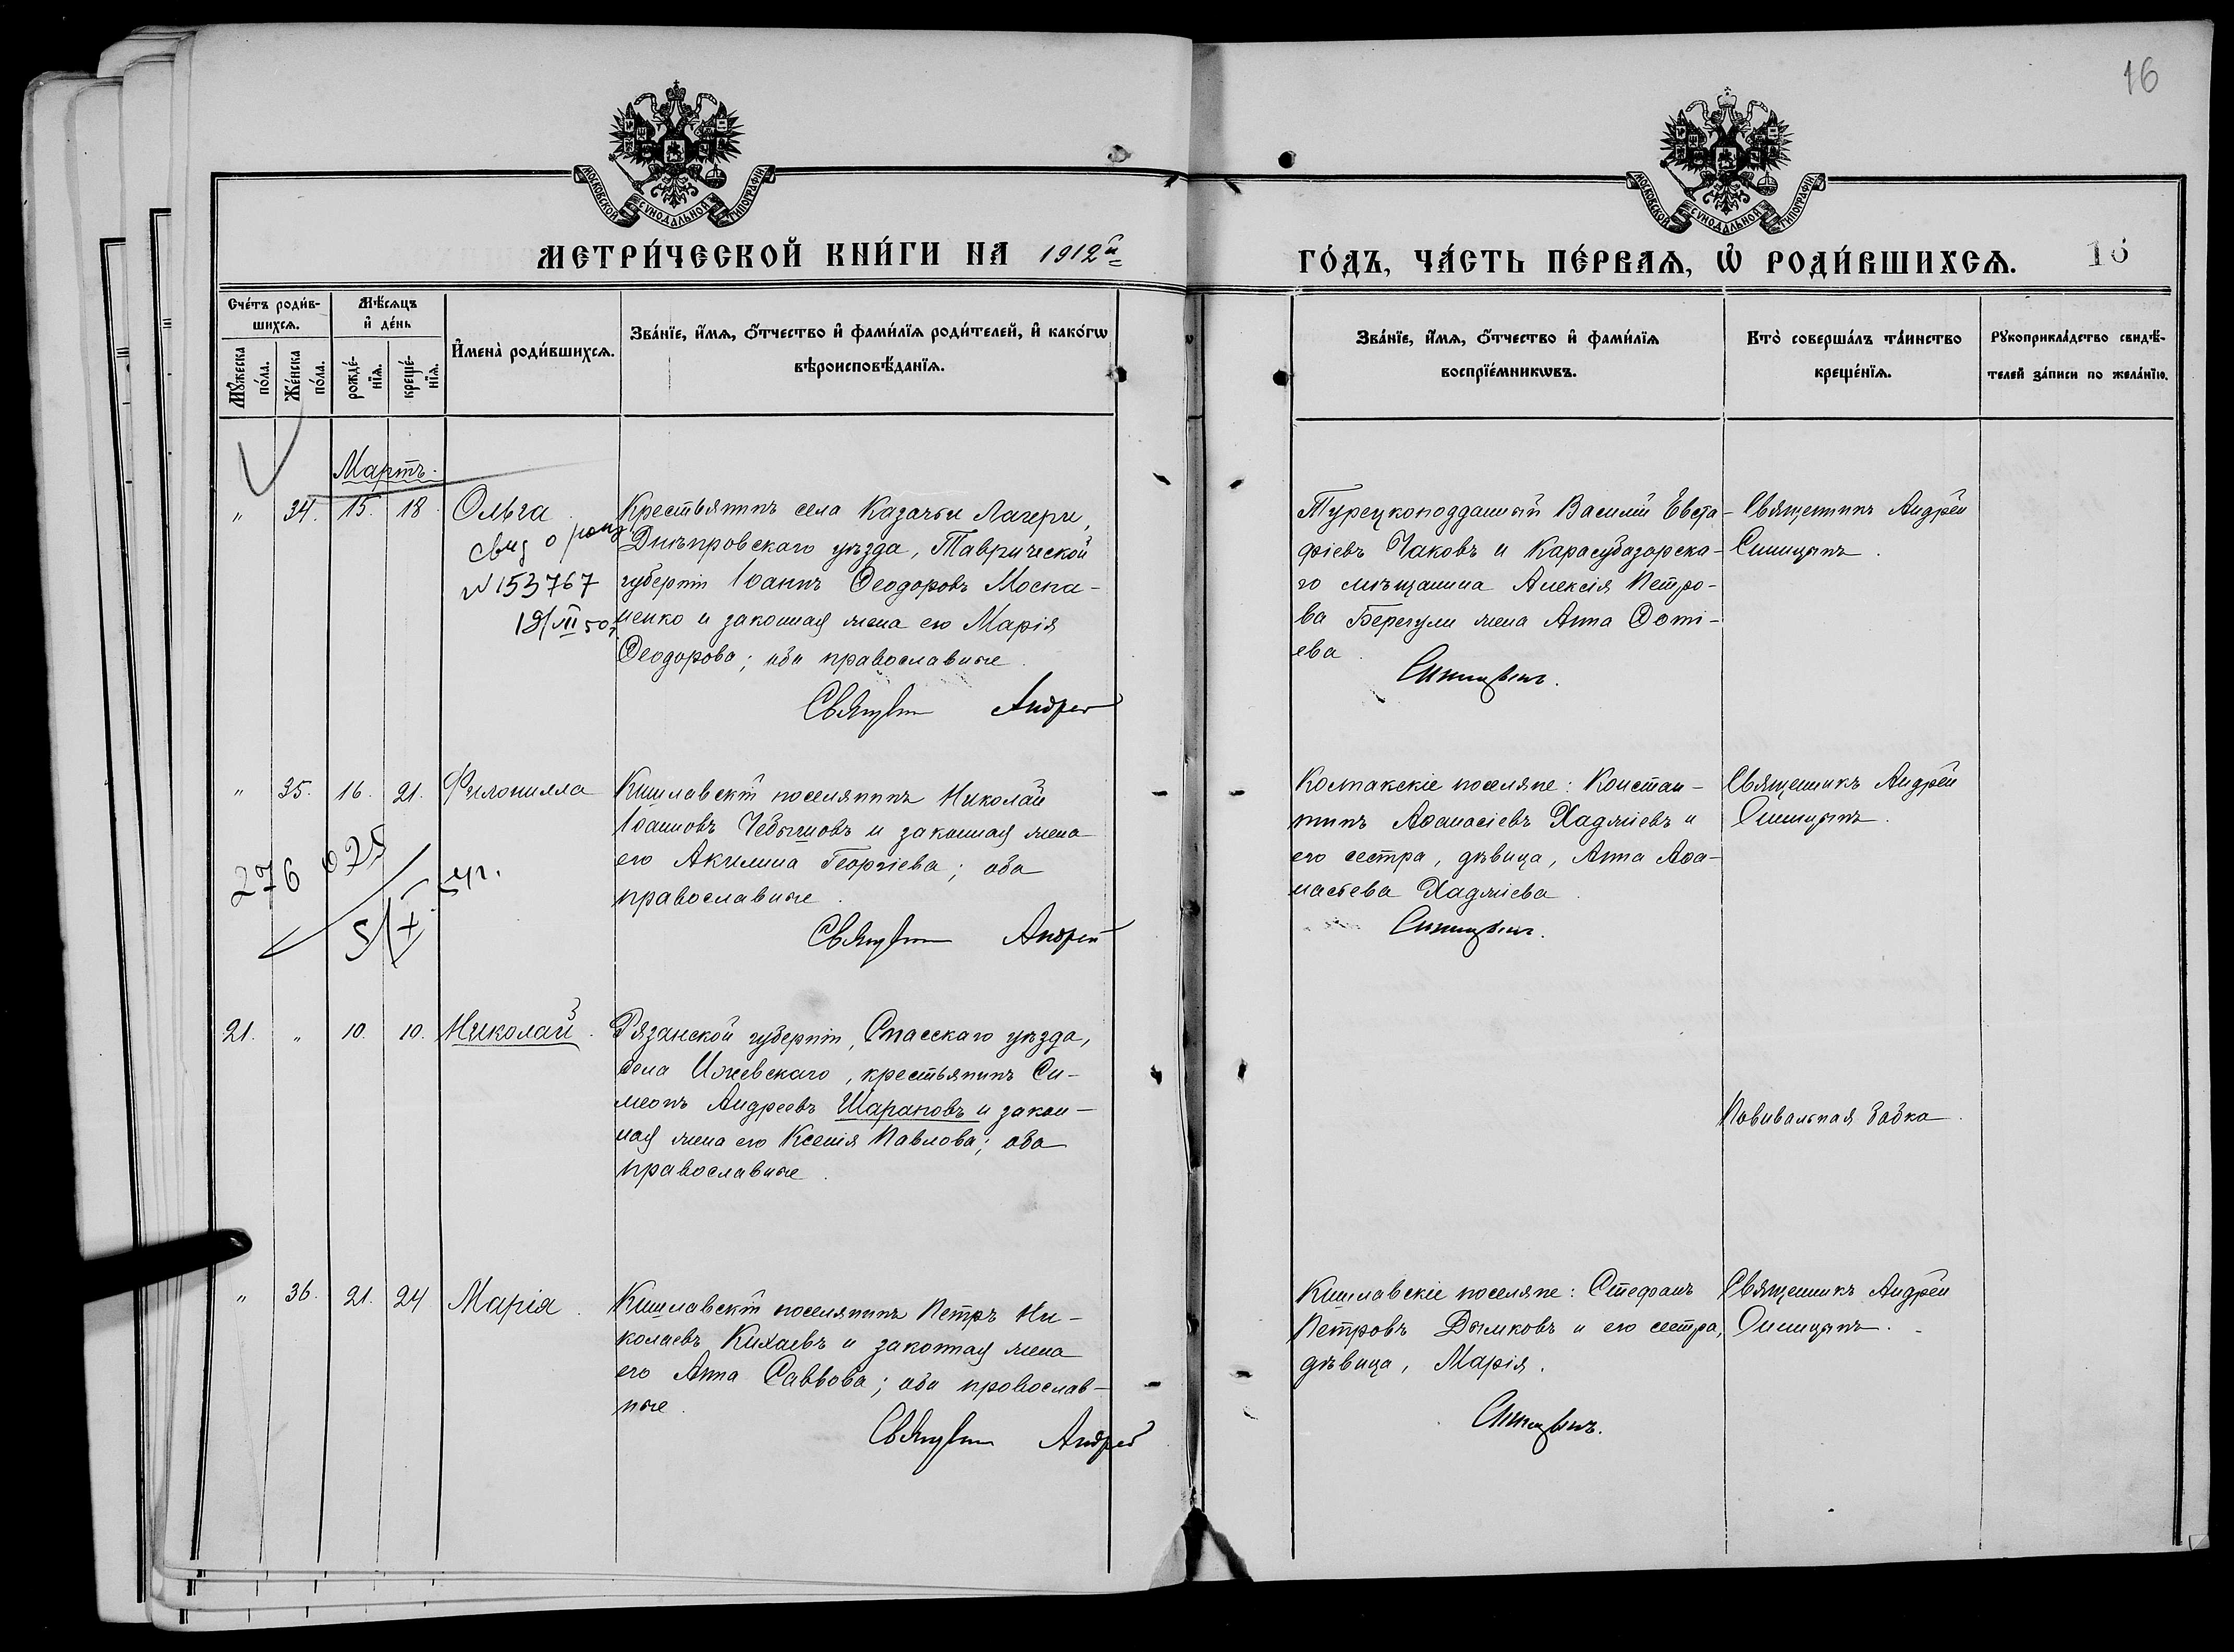 16
МОСКОВСКОЙ СУНОДАЛЬНОЙ ТИПОГРАФІИ
МОСКОВСКОЙ СУНОДАЛЬНОЙ ТИПОГРАФІИ
МЕТРИ́ЧЕСКОЙ КНИ́ГИ НА 1912й
ГО́ДЪ, ЧА́СТЬ ПЕ́РВАѦ, Ѡ҆ РОДИ́ВШИХСѦ.
16
Сче́тъ роди́в-
шихсѧ.
Мꙋ́жеска
по́ла.
Же́нска
по́ла.
Мѣ́сѧцъ
и҆ де́нь
рожде́-
нїѧ.
креще́-
нїѧ.
И҆мена̀ роди́вшихсѧ.
Зва́нїе, и҆́мѧ, ѻ҆́тчество и҆ фами́лїѧ роди́телей, и҆ како́гѡ
вѣроисповѣ́данїѧ.
Зва́нїе, и҆́мѧ, ѻ҆́тчество и҆ фами́лїѧ
воспрїе́мникѡвъ.
Кто̀ соверша́лъ та́инство
креще́нїѧ.
Рꙋкоприкла́дство свидѣ́-
телей за́писи по жела́нїю.
Мартъ.
" 34. 15. 18. Ольга
Крестьянинъ села Казачьи Лагери,
Днѣпровскаго уѣзда, Таврической
губерніи Іоаннъ Ѳеодоровъ Моспа-
ненко и законная жена его Марія
Ѳеодорова; оба православные.
свид о рожд
№ 153767
19/VII 50г
Священ Андрей
Турецкоподданный Василій Евста-
фіевъ Чаковъ и Карасубазарска-
го мѣщанина Алексія Петро-
ва Берегули жена Анна Фоті-
ева.
Синицынъ.
Священникъ Андрей
Синицынъ.
" 35. 16. 21. Филонилла
Кишлавскій поселянинъ Николай
Іоанновъ Чебышовъ и законная жена
его Акилина Георгіева; оба
православные.
276 025
5/X 54г.
Священ Андрей
Колпакскіе поселяне: Констан-
тинъ Аѳанасіевъ Хаджіевъ и
его сестра, дѣвица, Анна Аѳа-
насіева Хаджіева.
Синицынъ.
Священникъ Андрей
Синицынъ.
21. " 10. 10. Николай.
Рязанской губерніи, Спасскаго уѣзда,
села Ижевскаго, крестьянинъ Си-
меонъ Андреевъ Шарановъ и закон-
ная жена его Ксенія Павлова; оба
православные.
Повивальная бабка.
" 36. 21. 24 Марія.
Кишлавскій поселянинъ Петръ Ни-
колаевъ Кихаевъ и законная жена
его Анна Саввова; оба православ-
ные.
Священ Андрей
Кишлавскіе поселяне: Стефанъ
Петровъ Дымковъ и его сестра,
дѣвица, Марія.
Синицынъ.
Священникъ Андрей
Синицынъ.